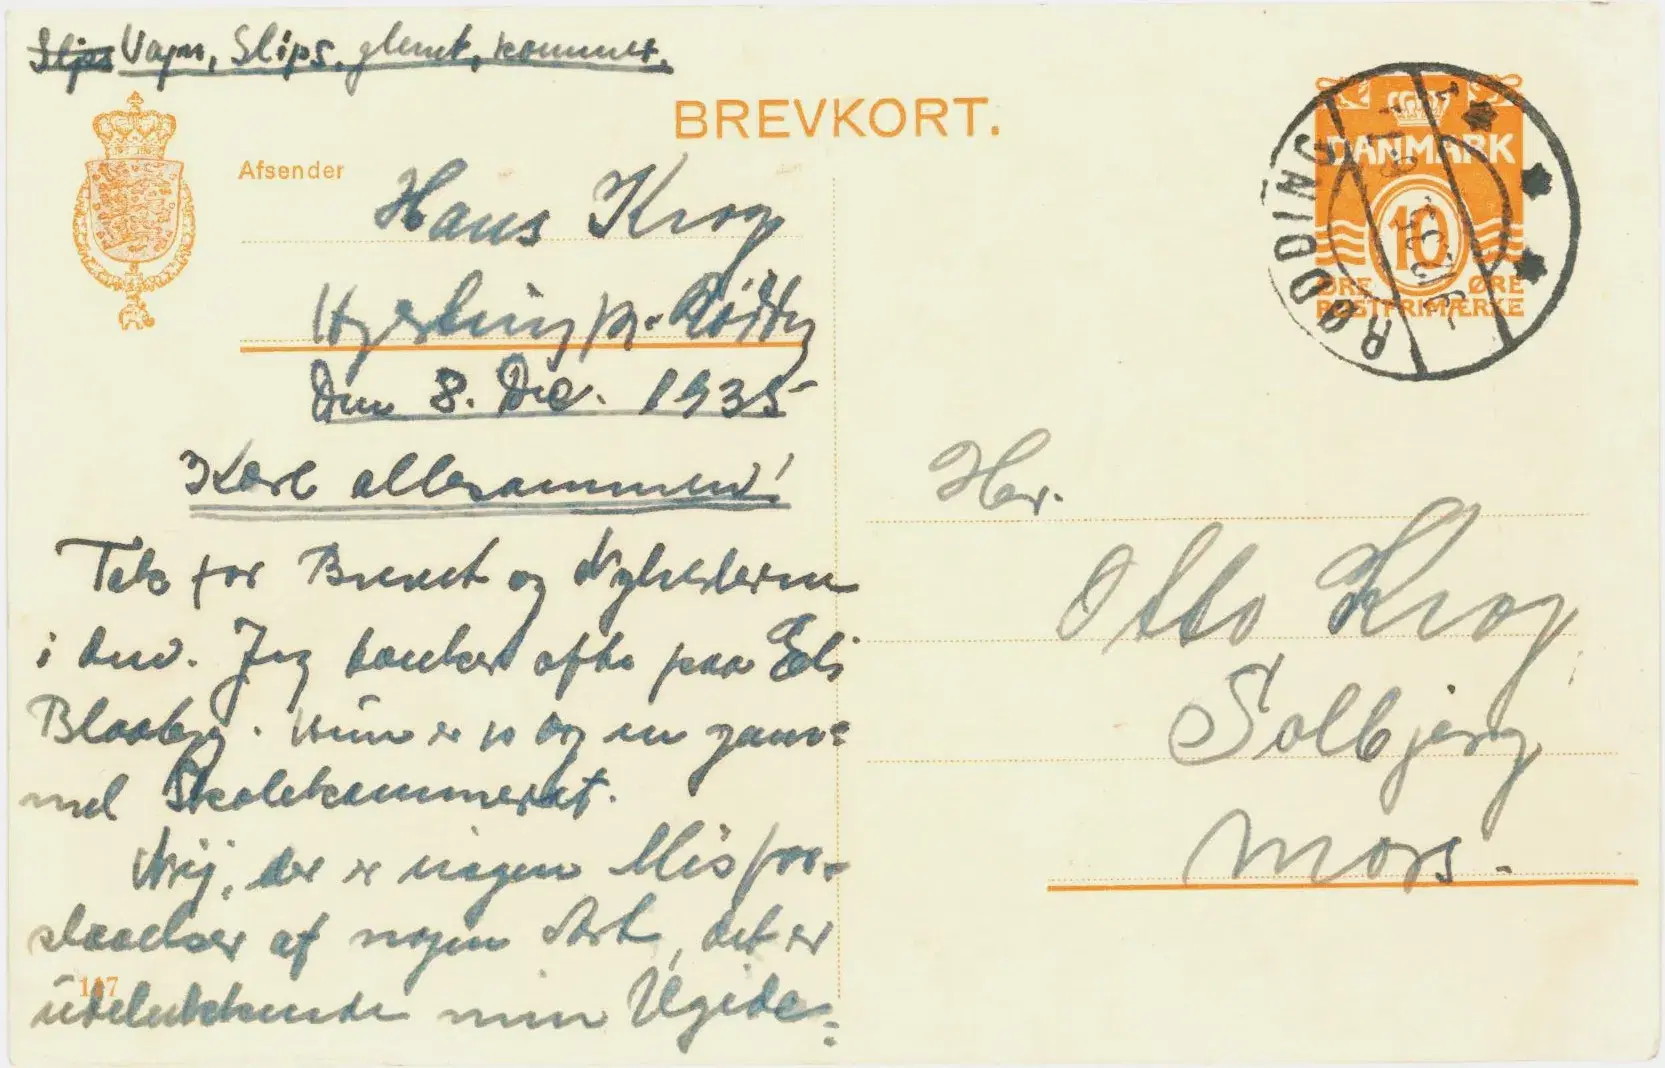 Slips Vagn, Slips, glemt, kommer.
BREVKORT.
Afsender
Hans Krog
Hjerting pr. Rødding
Den 8. Dec. 1935
Kære allesammen!
Tak for Brevet og Nyhederne
i det. Jeg tænker ofte paa Elsi
Blaabjg. Hun er jo dog en gam=
mel Skolekammerat.
Nej, der er ingen Misfor=
staaelser af nogen Art, det er
udelukkende min Ugide=
147
DANMARK
10
ØRE ØRE
POSTFRIMÆRKE
RØDDING
Hr.
Otto Krog
Solbjerg
Mors.